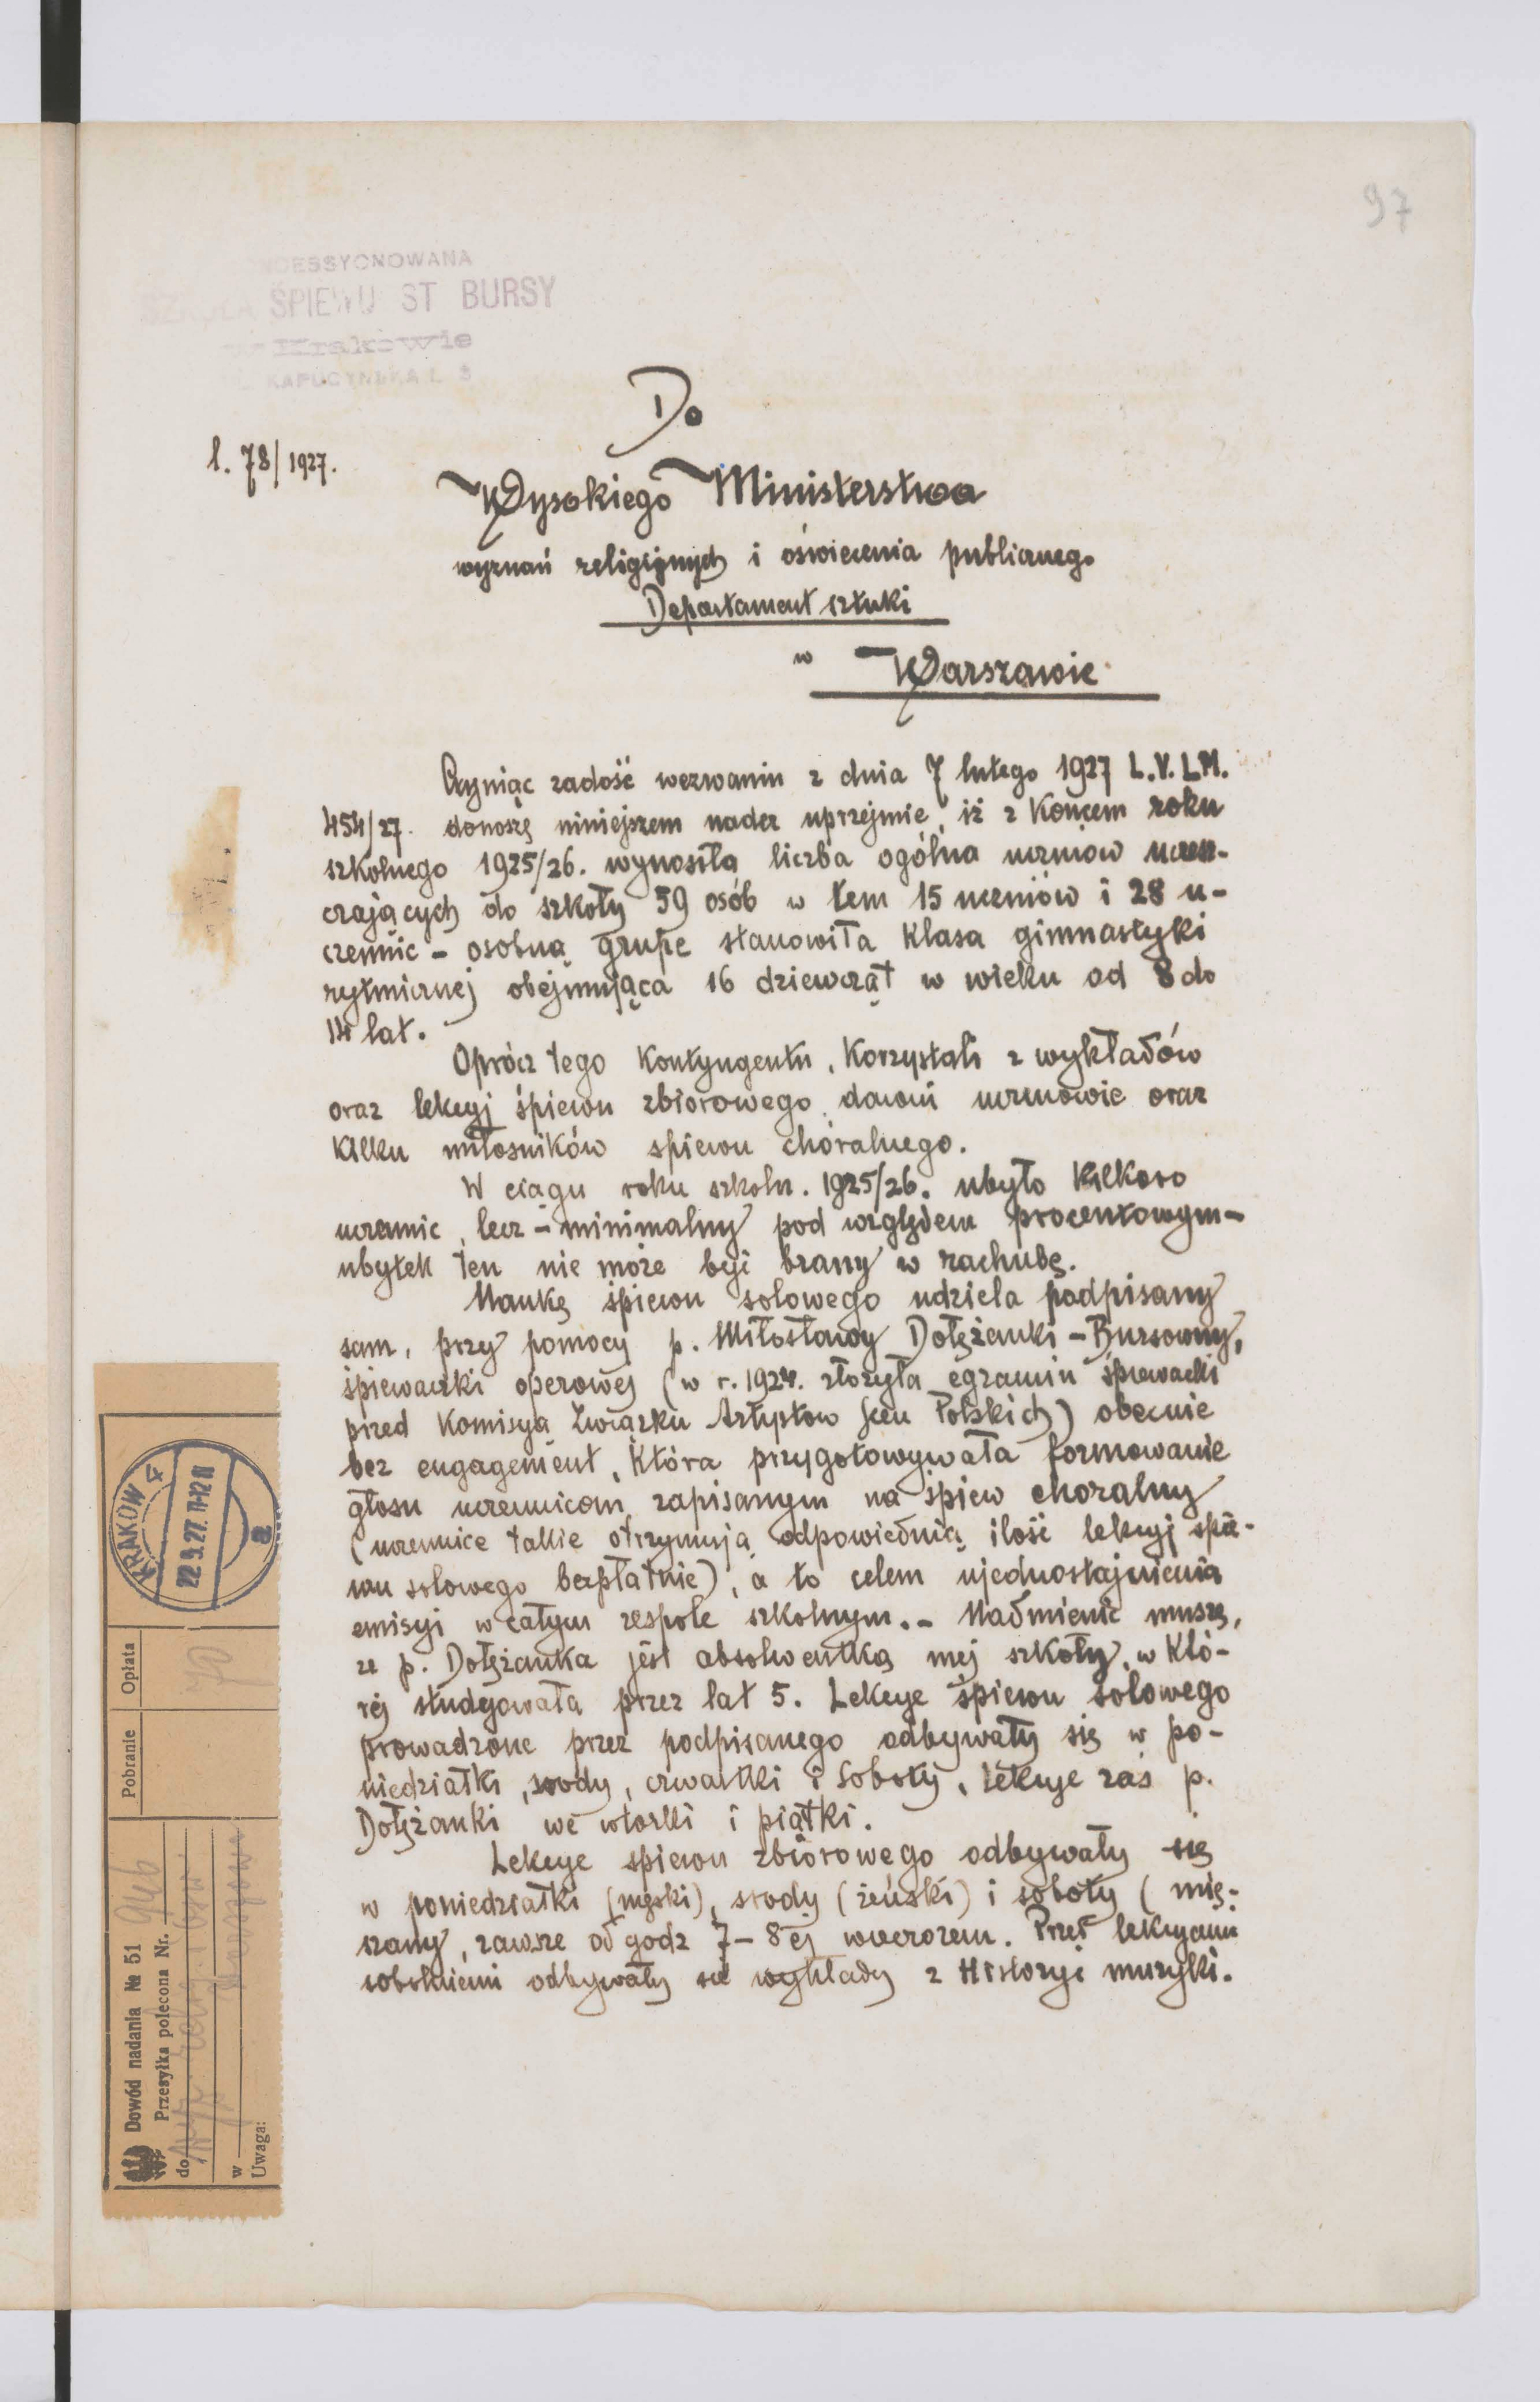 97
KONCESSYONOWANA
SZKOŁA ŚPIEWU ST BURSY
w Krakowie
KAPUCYŃSKA L. 3
l. 78/1927.
Do
Wysokiego Ministerstwa
wyznań religijnych i oświecenia publicznego
Departament sztuki
w Warszawie
Czyniąc zadość wezwaniu z dnia 7 lutego 1927 L.V.LM.
454/27. donoszę niniejszem nader uprzejmie, iż z Końcem roku
szkolnego 1925/26. wynosiła liczba ogólna uczniów uczęsz-
czających do szkoły 59 osób w tem 15 uczniów i 28 u-
czennic - osobną grupę stanowiła Klasa gimnastyki
rytmicznej obejmująca 16 dziewcząt w wieku od 8 do
14 lat.
Oprócz tego Kontyngentu, Korzystali z wykładów
oraz lekcyj śpiewu zbiorowego dawni uczniowie oraz
Kilku miłosników spiewu chóralnego.
W ciągu roku szkoln. 1925/26. ubyło Kilkoro
uczennic, lecz - minimalny pod względem procentowym -
ubytek ten nie może być brany w rachubę.
Naukę śpiewu solowego udziela podpisany
sam, przy pomocy p. Miłosławy Dołężanki - Bursowny,
śpiewaczki operowej (w r. 1924. złożyła egzamin śpiewacki
przed Komisyą Związku Artystow Scen Polskich) obecnie
bez engagement, Która przygotowywała formowanie
głosu uczennicom zapisanym na śpiew choralny
(uczennice takie otrzymują odpowiednią ilość lekcyj śpie-
wu solowego bezpłatnie), a to celem ujednostajnienia
emisyi w całym zespole szkolnym. - Nadmienić muszę,
że p. Dołężanka jest absolwentką mej szkoły, w Któ-
rej studyowała przez lat 5. Lekcye śpiewu solowego
prowadzone przez podpisanego odbywały się w po-
niedziałki, srody, czwartki i Soboty, lekcye zaś p.
Dołężanki we wtorki i piątki.
Lekcye spiewu zbiorowego odbywały się
w poniedziałki (męski), srody (żeński) i soboty (mię-
szany, zawsze od godz 7 - 8ej wieczorem. Przed lekcyami
sobotniemi odbywały się wykłady z Historyi muzyki.
Dowód nadania № 51
Przesyłka polecona Nr. 946
do
w Warszawa
Uwaga:
Pobranie
Opłata
70
KRAKÓW 4
22 9. 27. 11-12
a